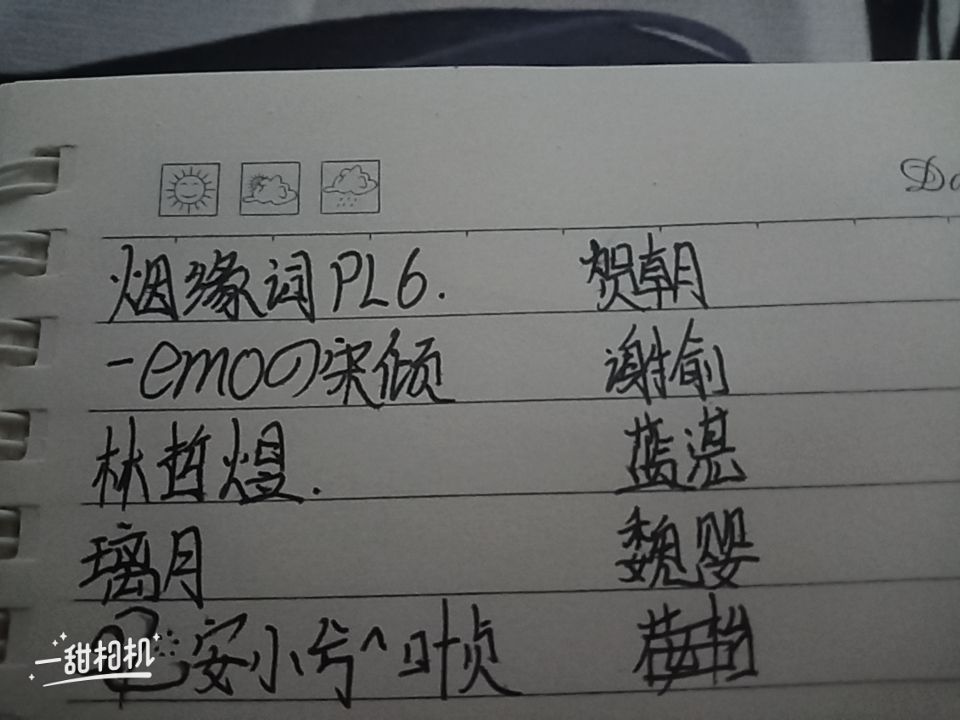 Da
烟缘词PL6. 贺朝
-emoの宋倾 谢俞
林哲煜. 蓝湛
璃月 魏婴
安小兮^叶贞
一甜相机